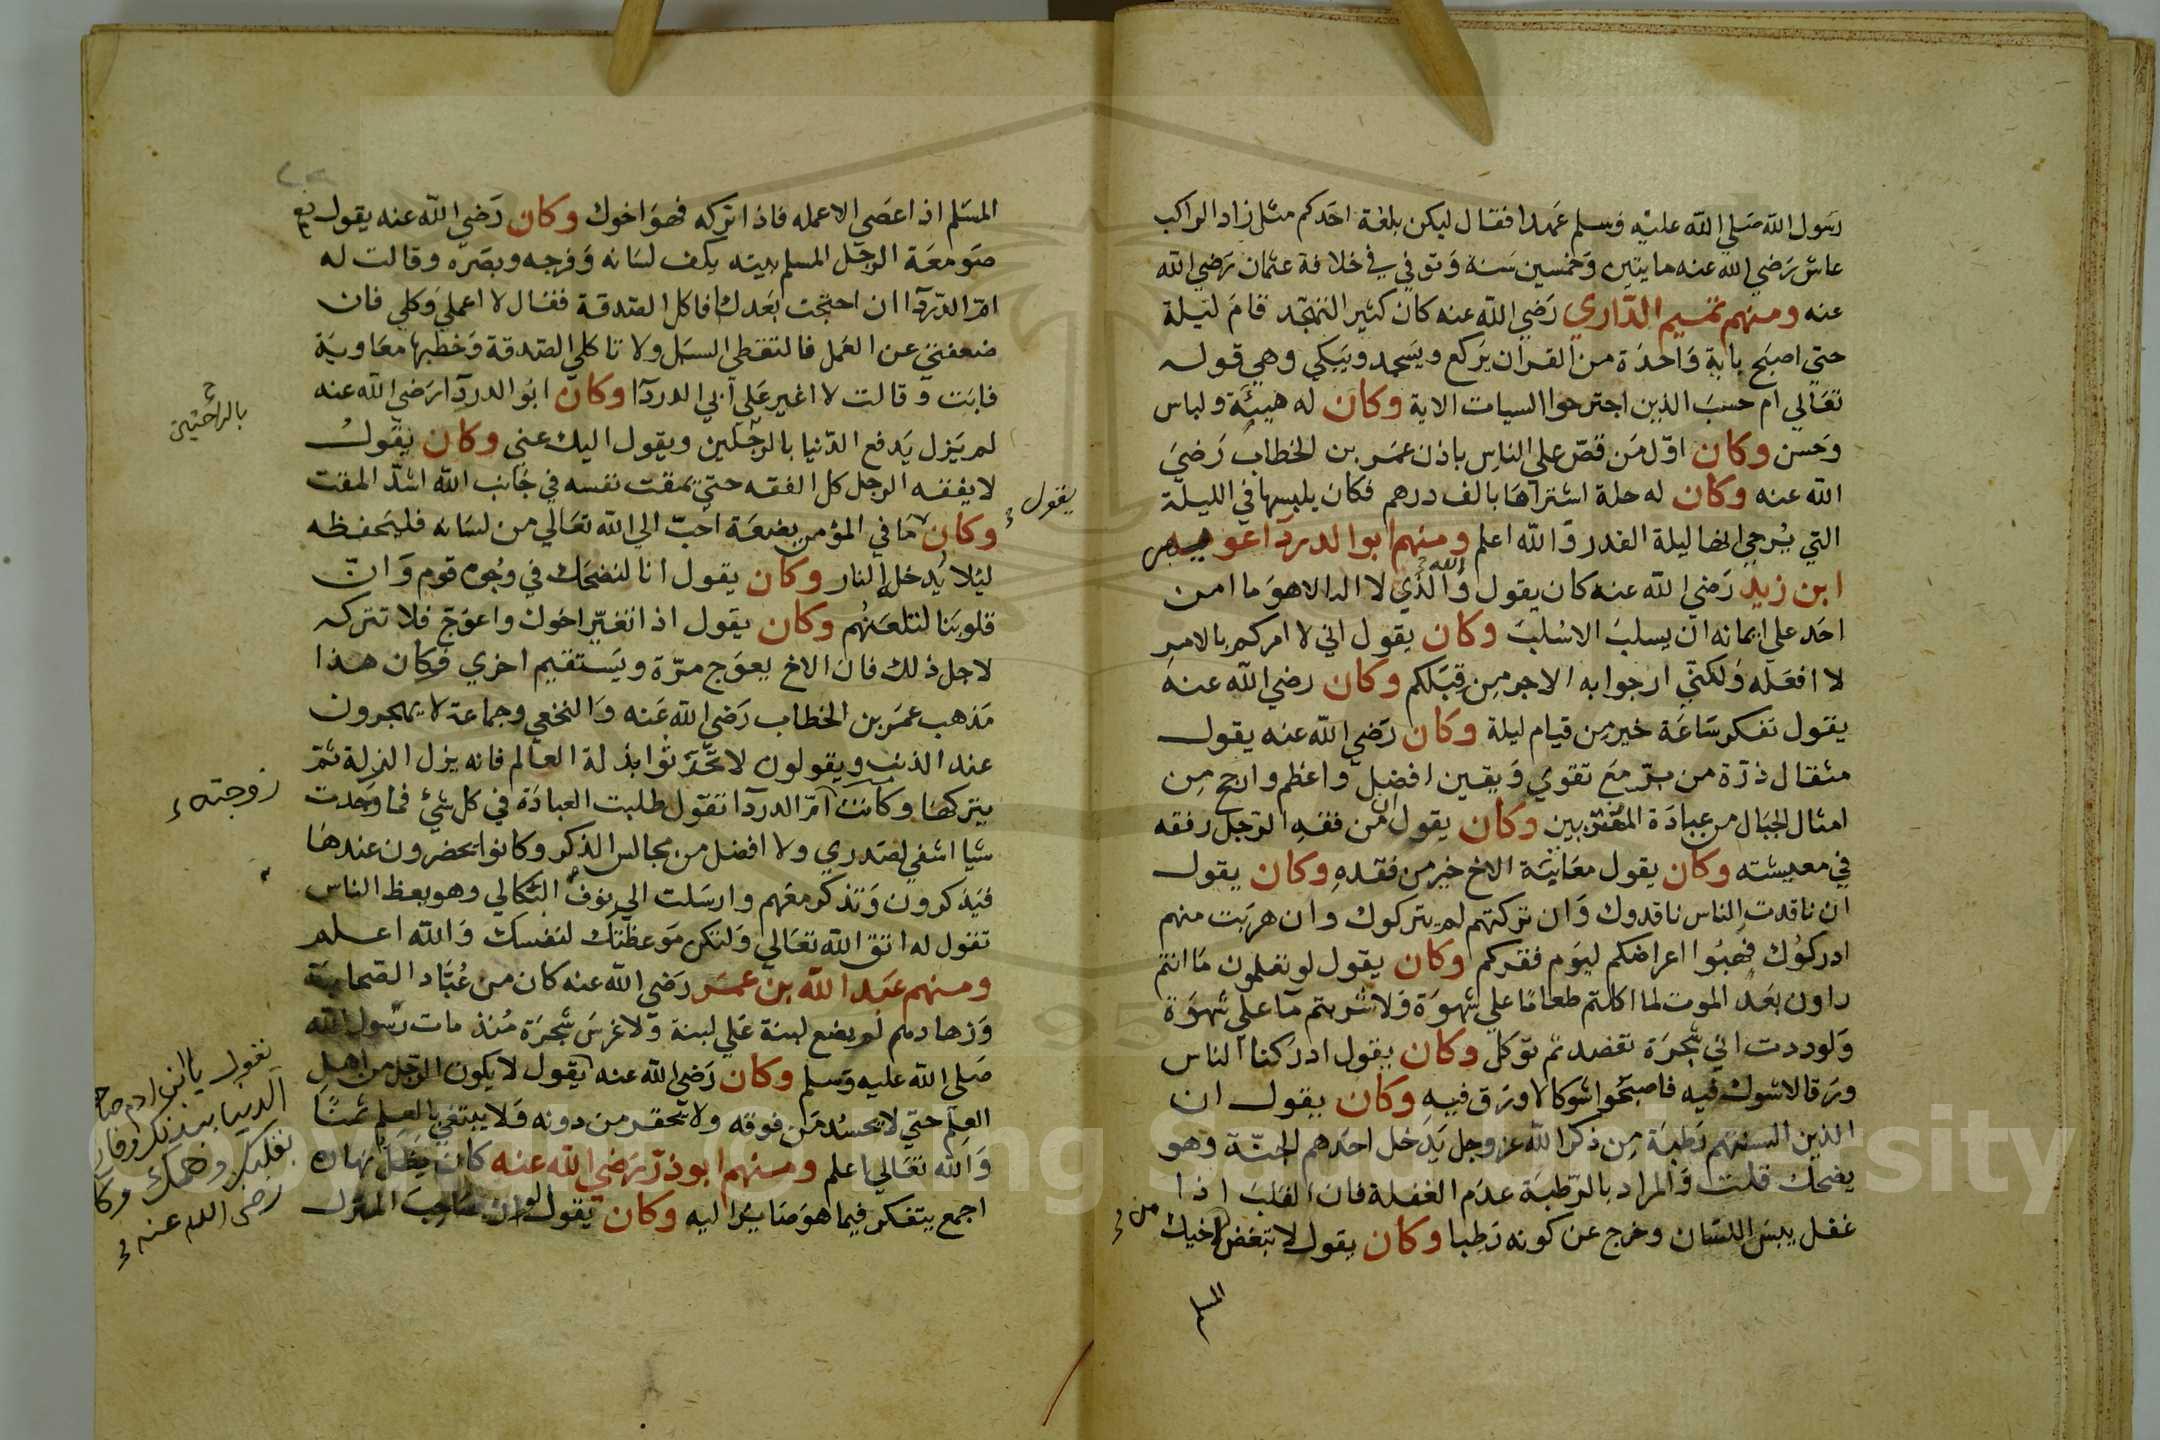 رسول الله صلي الله عليه وسلم عهدا فقال ليكن بلغة احدكم مثل زاد الراكب
عاش رضي الله عنه مايتين وخمسين سنة وتوفي في خلافة عثمان رضي الله
عنه ومنهم تميم الداري رضي الله عنه كان كثير التهجد قام ليلة
حتي اصبح باية واحدة من القران يركع ويسجد ويبكي وهي قوله
تعالي ام حسب الذين اجترحوا السيات الاية وكان له هيئة ولباس
وحسن وكان اول من قص علي الناس باذن عمر بن الخطاب رضي
الله عنه وكان له حلة اشتراها بالف درهم فكان يلبسها في الليلة
التي يرجي انها ليلة القدر والله اعلم ومنهم ابو الدردآ عويمر
ابن زيد رضي الله عنه كان يقول والله الذي لا اله الا هو ما امن
احد علي ايمانه ان يسلب الا سلب وكان يقول اني لا امركم بالامر
لا افعله ولكني ارجوا به الاجر من قبلكم وكان رضي الله عنه
يقول تفكر ساعة خير من قيام ليلة وكان رضي الله عنه يقول
مثقال ذرة من بر مع تقوي ويقين افضل واعظم وارجح من
امثال الجبال من عبادة المغترين وكان يقول ان من فقه الرجل رفقه
في معيشته وكان يقول معاتبة الاخ خير من فقده وكان يقول
ان ناقدت الناس ناقدوك وان تركتهم لم يتركوك وان هربت منهم
ادركوك فهبوا اعراضكم ليوم فقركم وكان يقول لو تعلمون ما انتم
راون بعد الموت لما اكلتم طعاما علي شهوة ولا شربتم مآ علي شهوة
ولوددت اني شجرة تعضد ثم توكل وكان يقول ادركنا الناس
ورقا لا شوك فيه فاصبحوا شوكا لا ورق فيه وكان يقول ان
الذين السنتهم رطبة من ذكر الله عز وجل يدخل احدهم الجنة وهو
يضحك قلت والمراد بالرطبة عدم الغفلة فان القلب اذا
غفل يبس اللسان وخرج عن كونه رطبا وكان يقول لا تبغض من اخيك
المسلم
المسلم اذا عصي الا عمله فاذا تركه فهو اخوك وكان رضي الله عنه يقول نعم
صومعة الرجل المسلم بيته يكف لسانه وفرجه وبصره وقالت له
ام الدردآ ان احتجت بعدك افاكل الصدقة فقال لا اعملي وكلي فان
ضعفتي عن العمل فالتقطي السبل ولا تاكلي الصدقة وخطبها معاوية
فابت وقالت لا اغير علي ابي الدردآ وكان ابو الدردآ رضي الله عنه
لم يزل يدفع الدنيا بالرجلين ويقول اليك عني وكان يقول
بالراحتين
لا يفقه الرجل كل الفقه حتي يمقت نفسه في جانب الله اشد المقت
وكان يقول ما في المؤمن بضعة احب الي الله تعالي من لسانه فليحفظه
ليلا يدخله النار وكان يقول انا لنضحك في وجوه قوم وان
قلوبنا لتلعنهم وكان يقول اذا تغير اخوك واعوج فلا تتركه
لاجل ذلك فان الاخ يعوج مرة ويستقيم اخري فكان هذا
مذهب عمر بن الخطاب رضي الله عنه والنخعي وجماعة لا يهجرون
عند الذنب ويقولون لا تحدثوا بذلة العالم فانه يزل الزلة ثم
يتركها وكانت زوجته ام الدردآ تقول طلبت العبادة في كل شيء فما وجدت
شيا اشفي لصدري ولا افضل من مجالس الذكر وكانوا يحضرون عندها
فيذكرون وتذكر معهم وارسلت الي نوف البكالي وهو يعظ الناس
تقول له اتق الله تعالي ولتكن موعظتك لنفسك والله اعلم
ومنهم عبد الله بن عمر رضي الله عنه كان من عباد الصحابة
وزهادهم لم يضع لبنة علي لبنة ولا غرس شجرة منذ مات رسول الله
صلي الله عليه وسلم وكان رضي الله عنه يقول لا يكون الرجل من اهل
يقول يا ابن ادم صاحب
الدنيا ببدنك وفارقها
بقلبك وهمك وكان
رضي الله عنه
العلم حتي لا يحسد من فوقه ولا يحقر من دونه ولا يبتغي بالعلم ثمنا
والله تعالي اعلم ومنهم ابو ذر رضي الله عنه كان يظل نهاره
اجمع يتفكر فيما هو صاير اليه وكان يقول لو ان صاحب المنزل